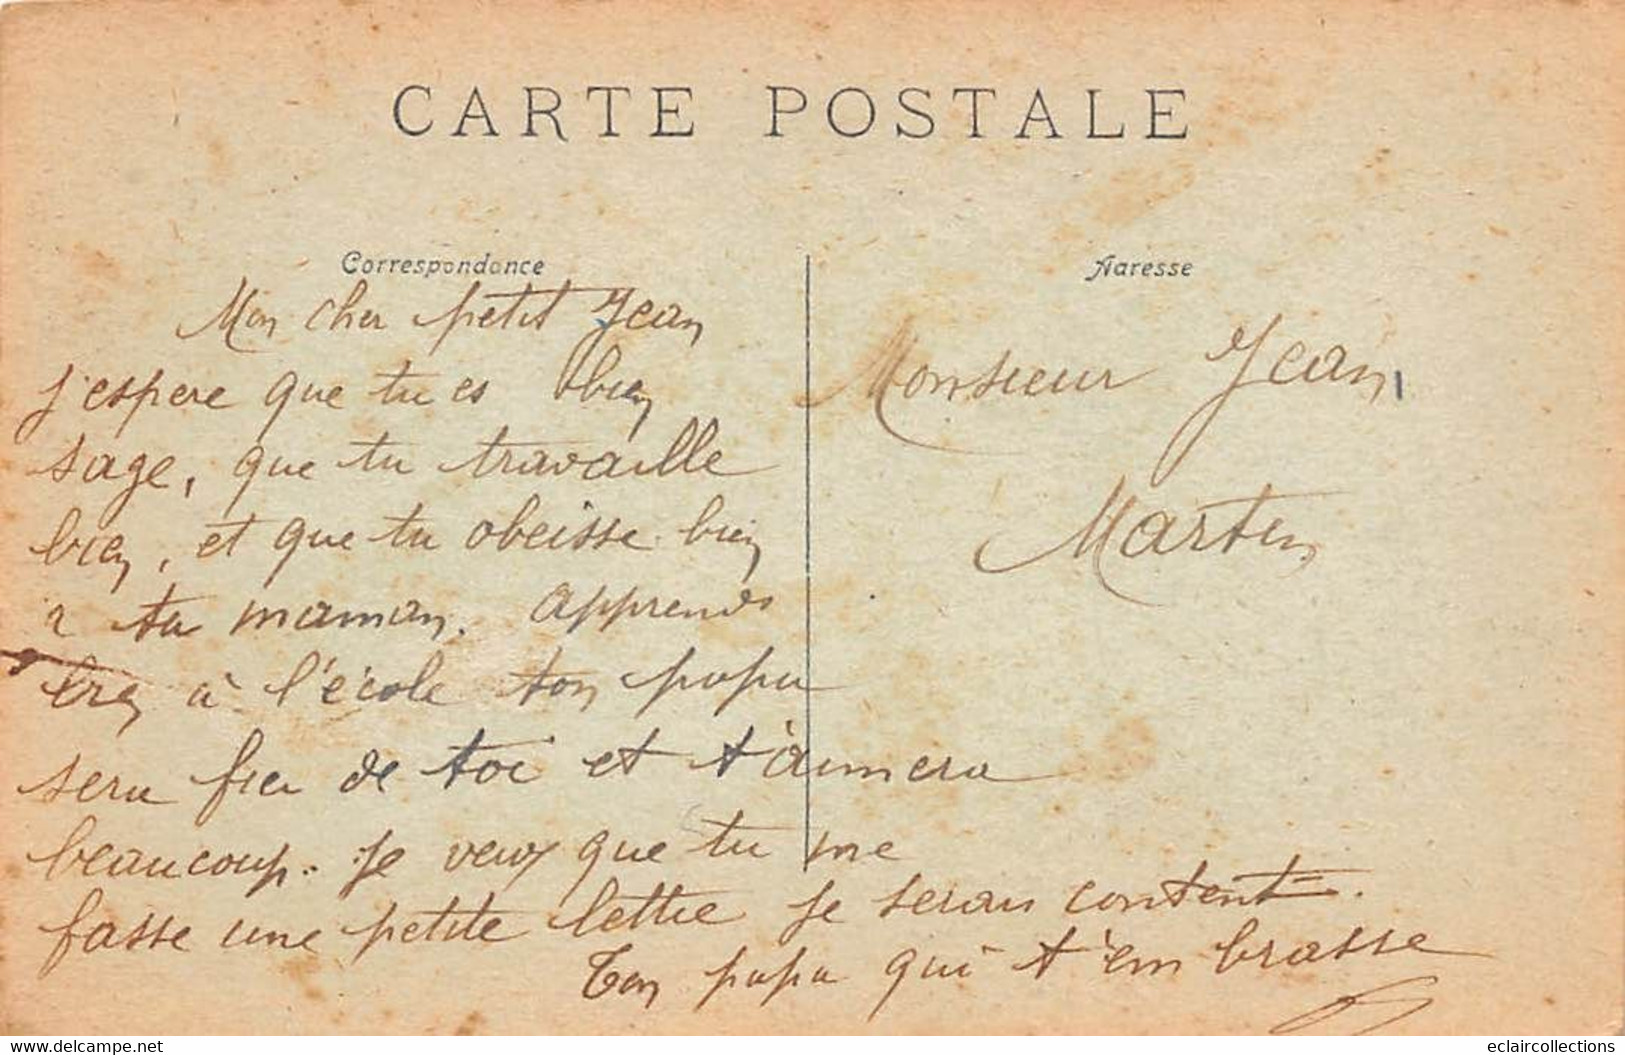 CARTE POSTALE
Correspondance
Adresse
Mon cher petit Jean
j'espere que tu es bien
sage, que tu travaille
bien, et que tu obeisse bien
a ta maman. apprends
bien à l'école ton papa
sera fier de toi et t'aimera
beaucoup. je veux que tu me
fasse une petite lettre je serais content.
Ton papa qui t'embrasse
Monsieur Jean
Martin
delcampe.net
eclaircollections